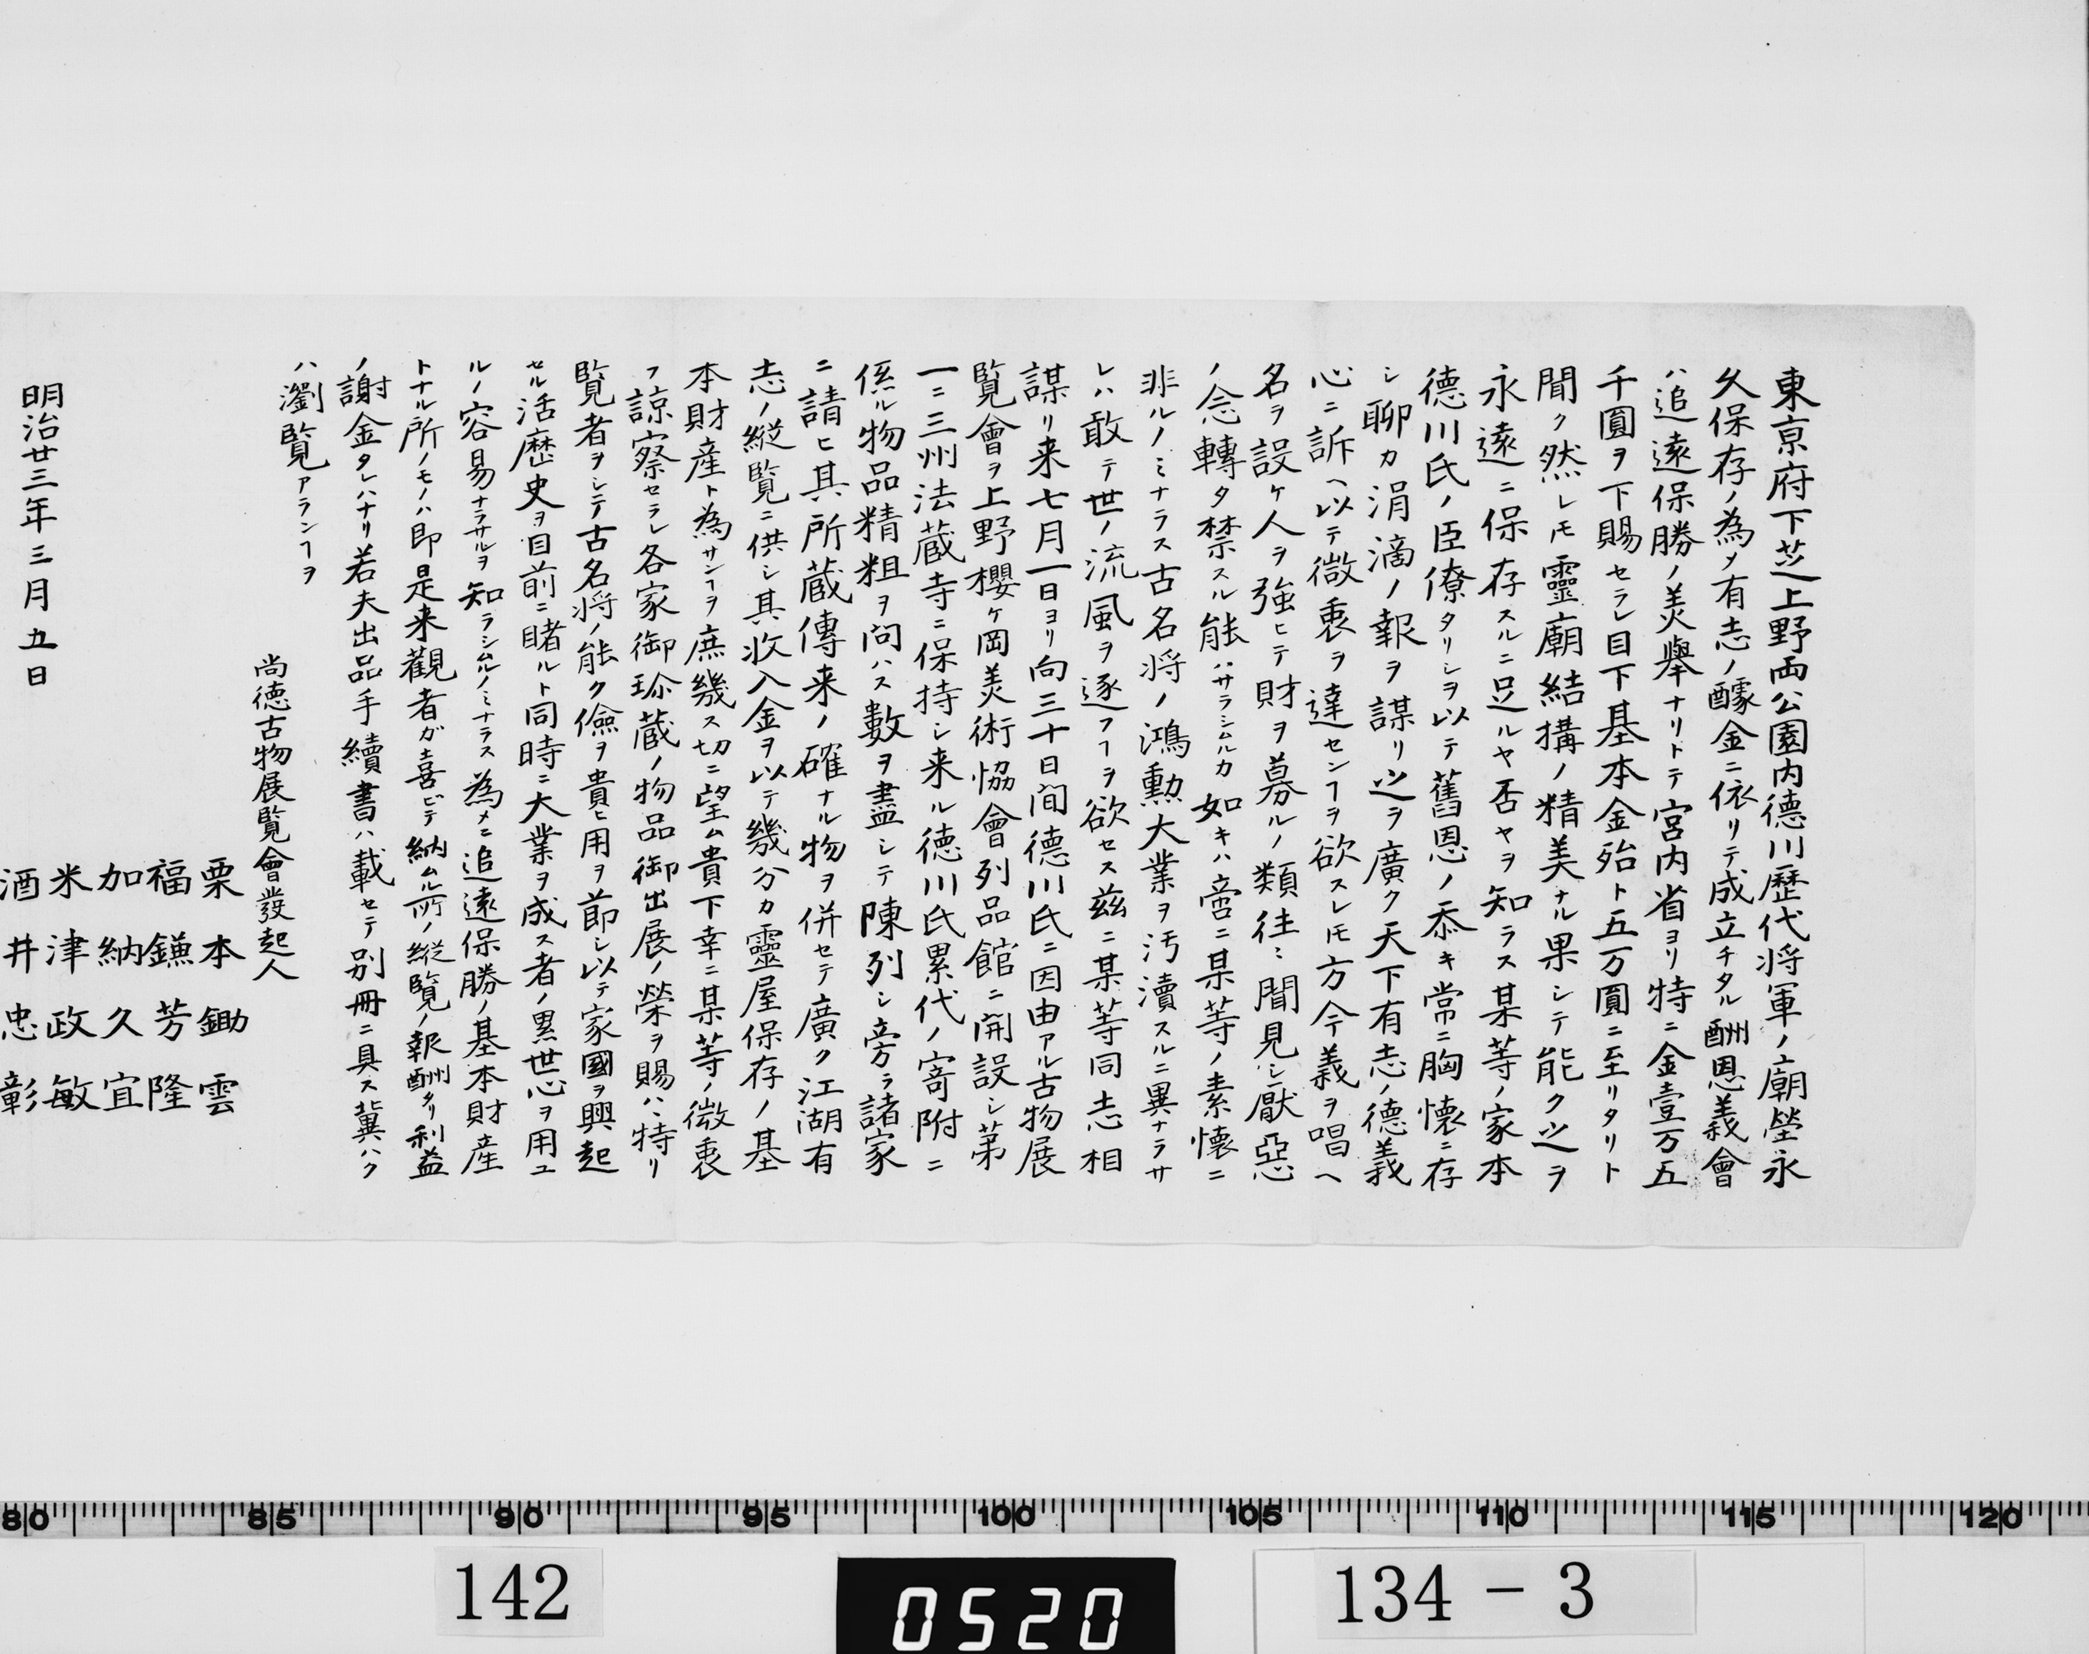 東京府下芝上野両公園内徳川歴代将軍ノ廟塋永
久保存ノ為メ有志ノ醵金ニ依リテ成立チタル酬恩義會
ハ追遠保勝ノ美舉ナリトテ宮内省ヨリ特ニ金壹万五
千圓ヲ下賜セラレ目下基本金殆ト五万圓ニ至リタリト
聞ク然レ𪜈靈廟結搆ノ精美ナル果シテ能ク之ヲ
永遠ニ保存スルニ足ルヤ否ヤヲ知ラス某等ノ家本
德川氏ノ臣僚タリシヲ以テ舊恩ノ忝キ常ニ胸懐ニ存
シ聊カ涓滴ノ報ヲ謀リ之ヲ廣ク天下有志ノ德義
心ニ訴ヘ以テ微衷ヲ達センヿヲ欲スレ𪜈方今義ヲ唱ヘ
名ヲ設ケ人ヲ強ヒテ財ヲ募ルノ類往〻聞見シ厭惡
ノ念轉タ禁スル能ハサラシムルカ如キハ啻ニ某等ノ素懐ニ
非ルノミナラス古名将ノ鴻勲大業ヲ汚瀆スルニ異ナラサ
レハ敢テ世ノ流風ヲ逐フヿヲ欲セス茲ニ某等同志相
謀リ来七月一日ヨリ向三十日間德川氏ニ因由アル古物展
覧會ヲ上野櫻ケ岡美術協會列品館ニ開設シ第
一ニ三州法蔵寺ニ保持シ来ル徳川氏累代ノ寄附ニ
係ル物品精粗ヲ問ハス數ヲ盡シテ陳列シ旁ラ諸家
ニ請ヒ其所蔵傳来ノ確ナル物ヲ併セテ廣ク江湖有
志ノ縦覧ニ供シ其收入金ヲ以テ幾分カ靈屋保存ノ基
本財産ト為サンヿヲ庶幾ス切ニ望ム貴下幸ニ某等ノ微衷
ヲ諒察セラレ各家御珍蔵ノ物品御出展ノ榮ヲ賜ハヽ特リ
覧者ヲシテ古名将ノ能ク儉ヲ貴ヒ用ヲ節シ以テ家國ヲ興起
セル活歴史ヲ目前ニ睹ルト同時ニ大業ヲ成ス者ノ累世心ヲ用ユ
ルノ容易ナラサルヲ知ラシムルノミナラス為メニ追遠保勝ノ基本財産
トナル所ノモノハ即是来觀者ガ喜ビテ納ムル所ノ縦覧ノ報酬タリ利益
ノ謝金タレハナリ若夫出品手續書ハ載セテ別冊ニ具ス冀ハク
ハ瀏覧アランヿヲ
尚德古物展覧會發起人
栗本鋤雲
福鎌芳隆
加納久宜
米津政敏
酒井忠彰
明治廿三年三月五日
80 85 90 95 100 105 110 115 120
142
0520
134-3